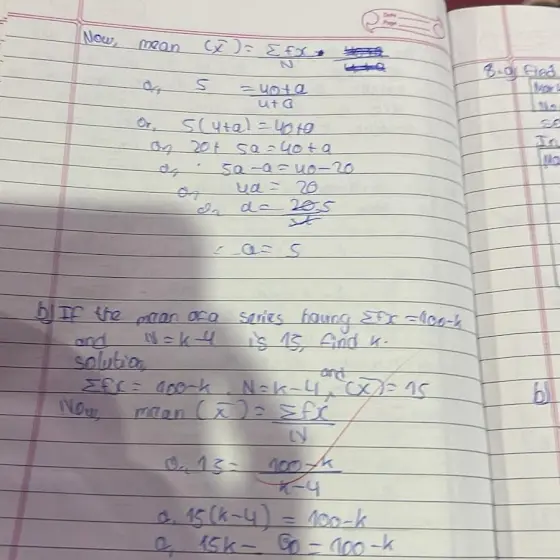 Date
Page
Now, mean (x̄) = Σfx
N
or, 5 = 40+a
4+a
or, 5(4+a) = 40+a
or, 20+ 5a = 40+a
or, 5a-a = 40-20
or, 4a = 20
or, a = 20 5
∴ a = 5
b) If the mean of a series having Σfx = 100-k
and N = k-4 is 15, find k.
solution,
Σfx = 100-k, N = k-4, and (x̄) = 15
Now, mean (x̄) = Σfx
N
or, 15 = 100-k
k-4
or, 15(k-4) = 100-k
or, 15k - 60 = 100-k
8.a) find
b)